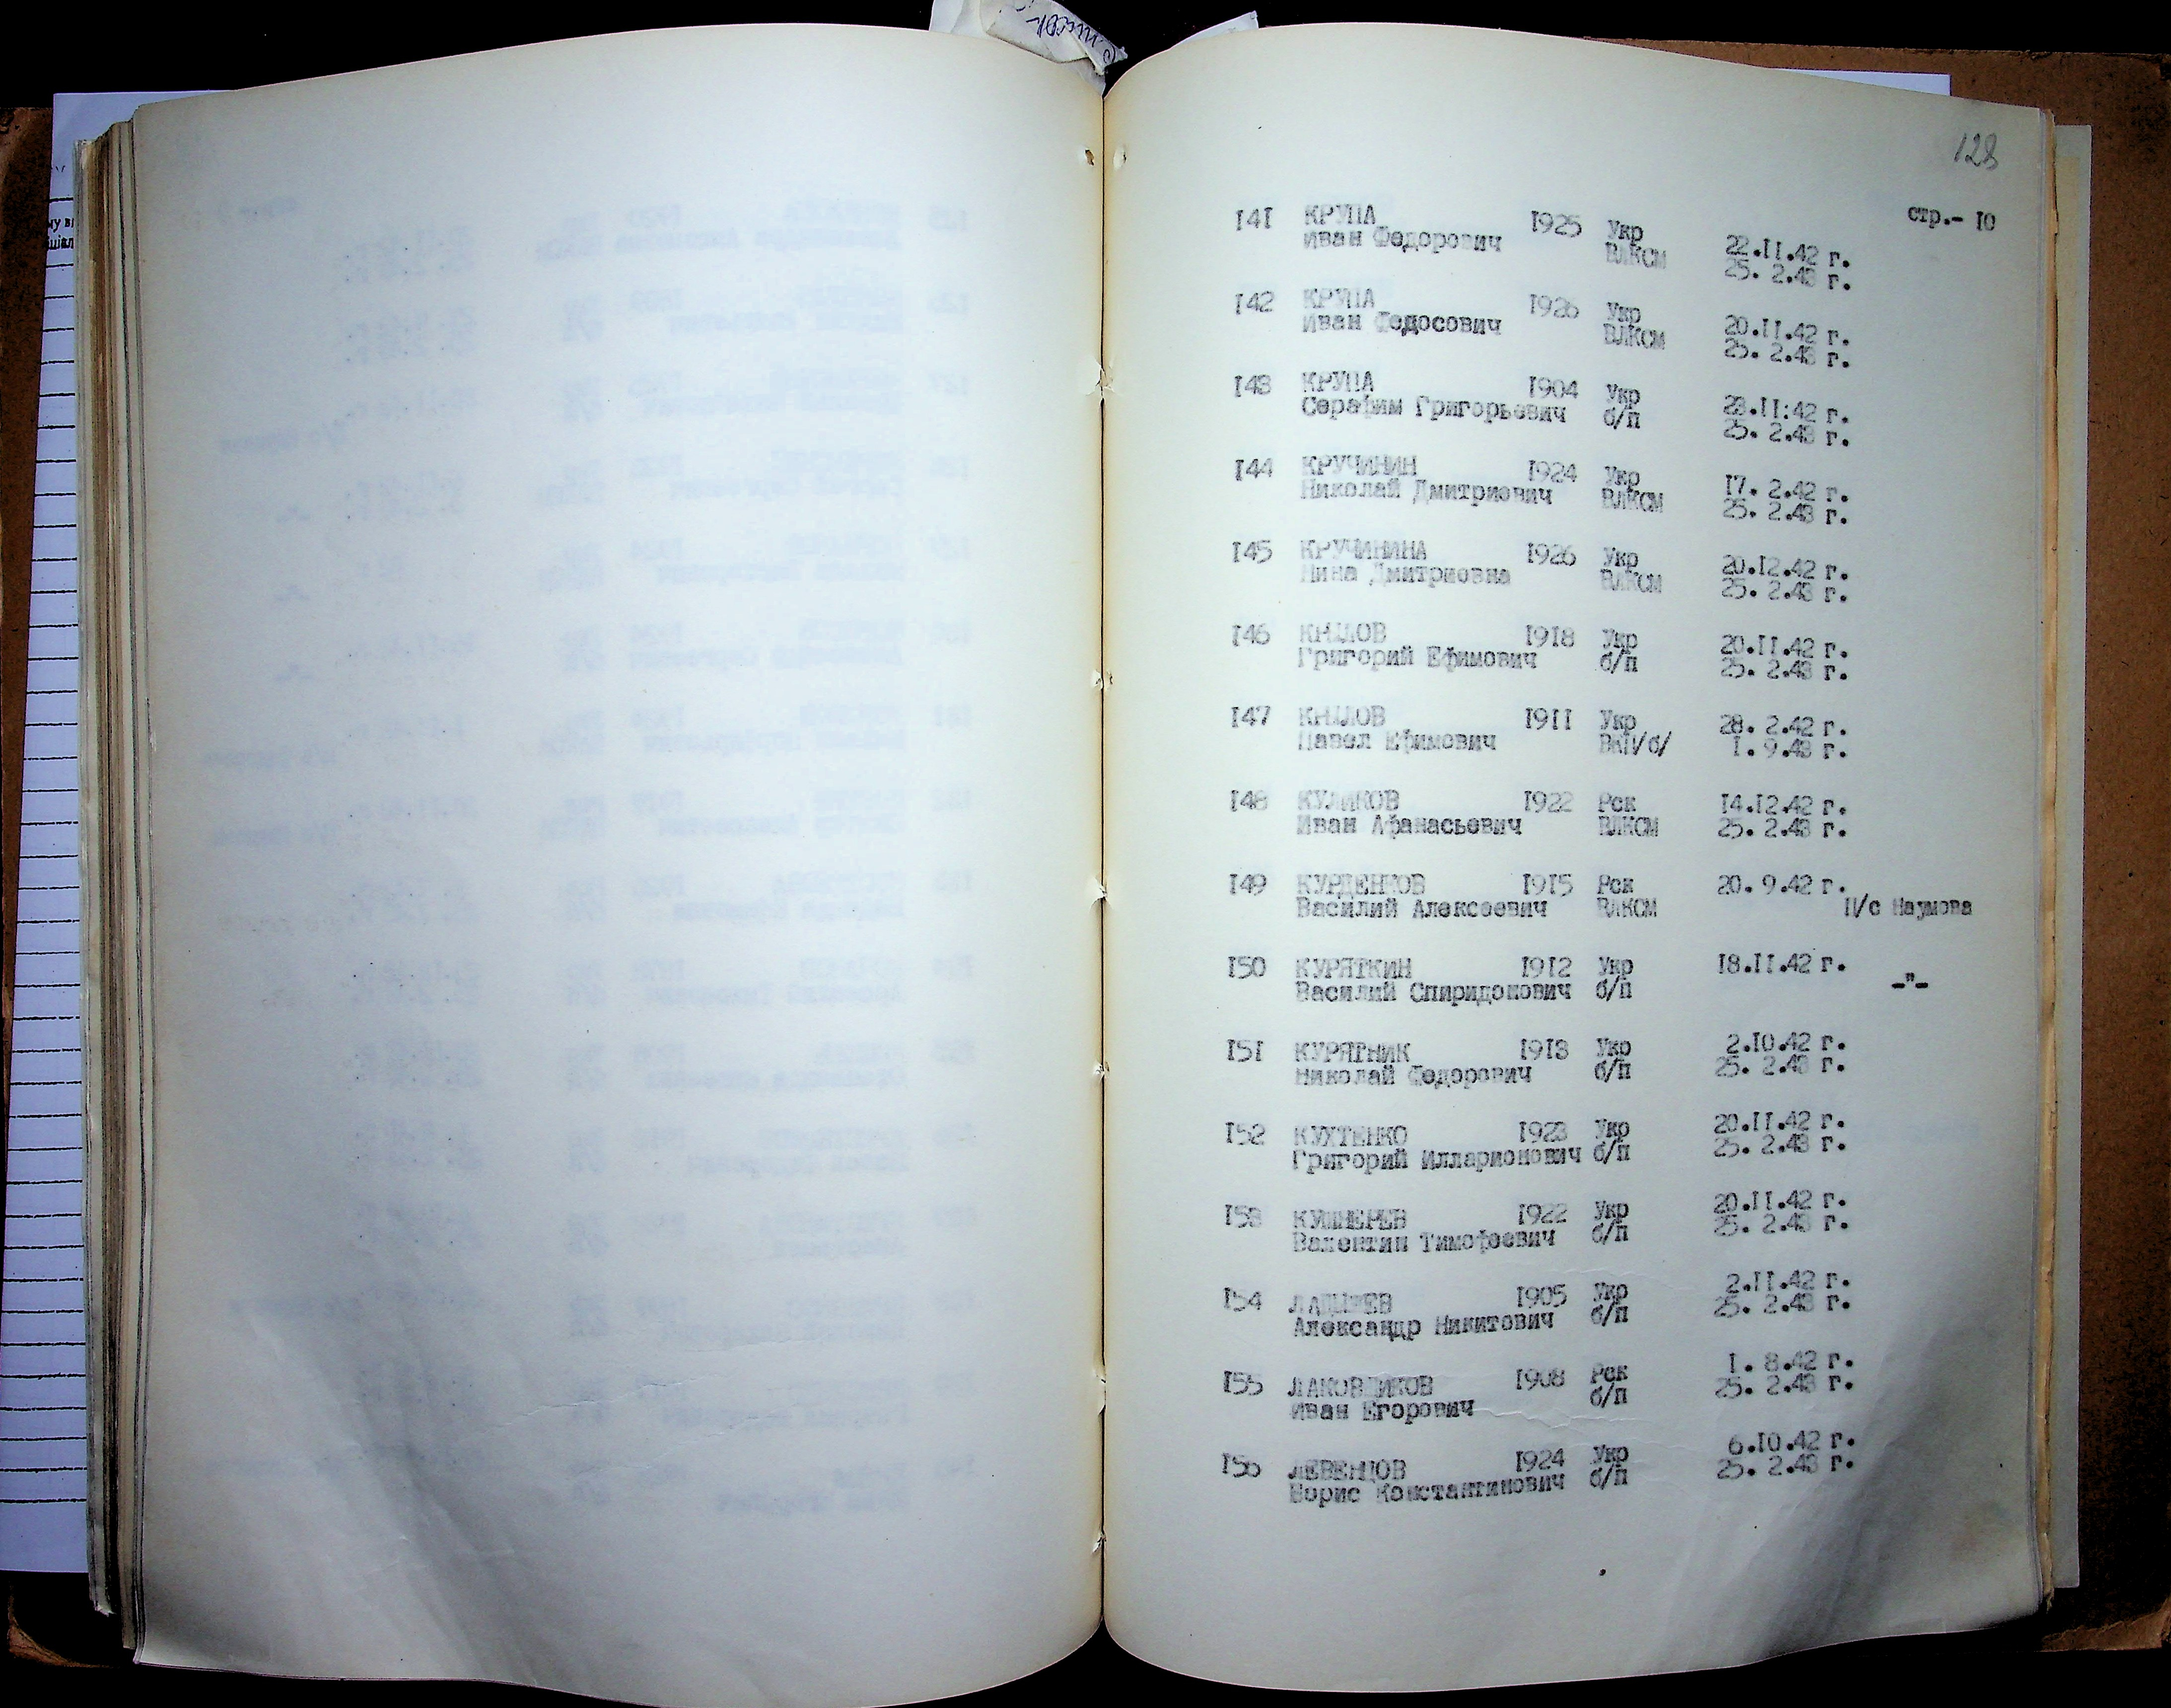 128
стр.- 10
141 КРУПА 1925 Укр 22.11.42 г.
Иван Федорович ВЛКСМ 25. 2.43 г.
142 КРУПА 1926 Укр 20.11.42 г.
Иван Федосович ВЛКСМ 25. 2.43 г.
143 КРУПА 1904 Укр 23.11:42 г.
Серафим Григорьевич б/п 25. 2.43 г.
144 КРУЧИНИН 1924 Укр 17. 2.42 г.
Николай Дмитриевич ВЛКСМ 25. 2.43 г.
145 КРУЧИНИНА 1926 Укр 20.12.42 г.
Нина Дмитриевна ВЛКСМ 25. 2.43 г.
146 1918 Укр 20.11.42 г.
Григорий Ефимович б/п 25. 2.43 г.
147 1911 Укр 28. 2.42 г.
Павел Ефимович ВКП/б/ 1. 9.43 г.
148 КУЛИКОВ 1922 Рск 14.12.42 г.
Иван Афанасьевич ВЛКСМ 25. 2.43 г.
149 КУРДЕНКОВ 1915 Рск 20. 9.42 г.
Василий Алексеевич ВЛКСМ П/с Наумова
150 КУРЯТКИН 1912 Укр 18.11.42 г.
Василий Спиридонович б/п -"-
151 КУРЯТНИК 1913 Укр 2.10.42 г.
Николай Федорович б/п 25. 2.43 г.
152 КУХТЕНКО 1923 Укр 20.11.42 г.
Григорий Илларионович б/п 25. 2.43 г.
153 КУШНЕРЕВ 1922 Укр 20.11.42 г.
Валентин Тимофеевич б/п 25. 2.43 г.
154 1905 Укр 2.11.42 г.
Александр Никитович б/п 25. 2.43 г.
155 1908 Рск 1. 8.42 г.
Иван Егорович б/п 25. 2.43 г.
156 ЛЕВЕНЦОВ 1924 Укр 6.10.42 г.
Борис Константинович б/п 25. 2.43 г.